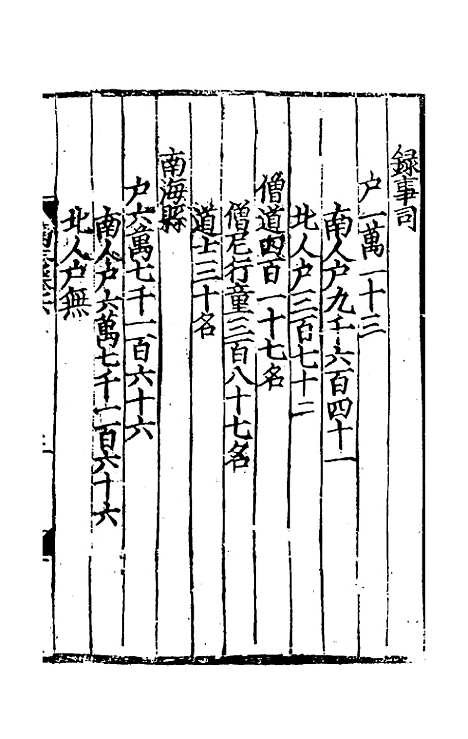 録事司
户一萬一十三
南人户九千六百四十一
北人户三百七十二
僧道四百一十七名
僧尼行童三百八十七名
道士三十名
南海縣
户六萬七千一百六十六
南人户六萬七千一百六十六
北人户無